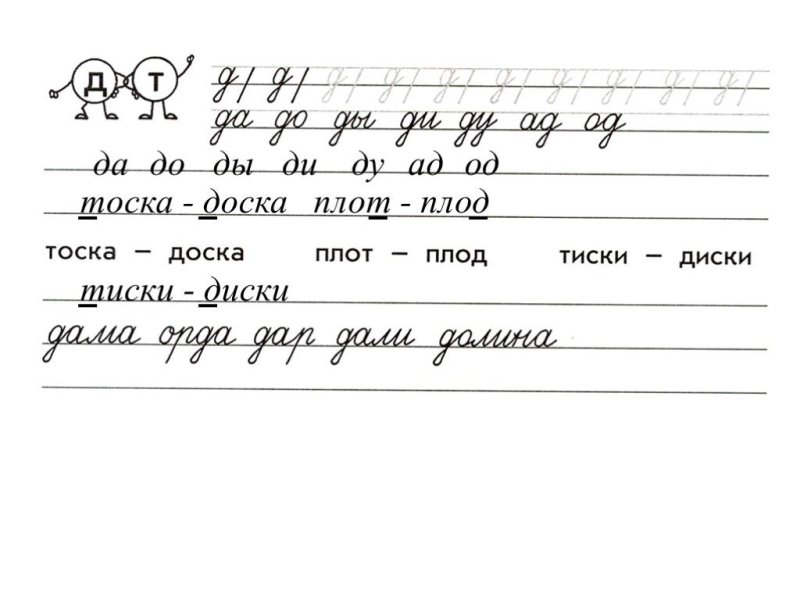 Д Т
д д д д д д д д д д
да до ды ди ду ад од
да до ды ди ду ад од
тоска - доска плот - плод
тоска – доска плот – плод тиски – диски
тиски - диски
дама орда дар дали долина